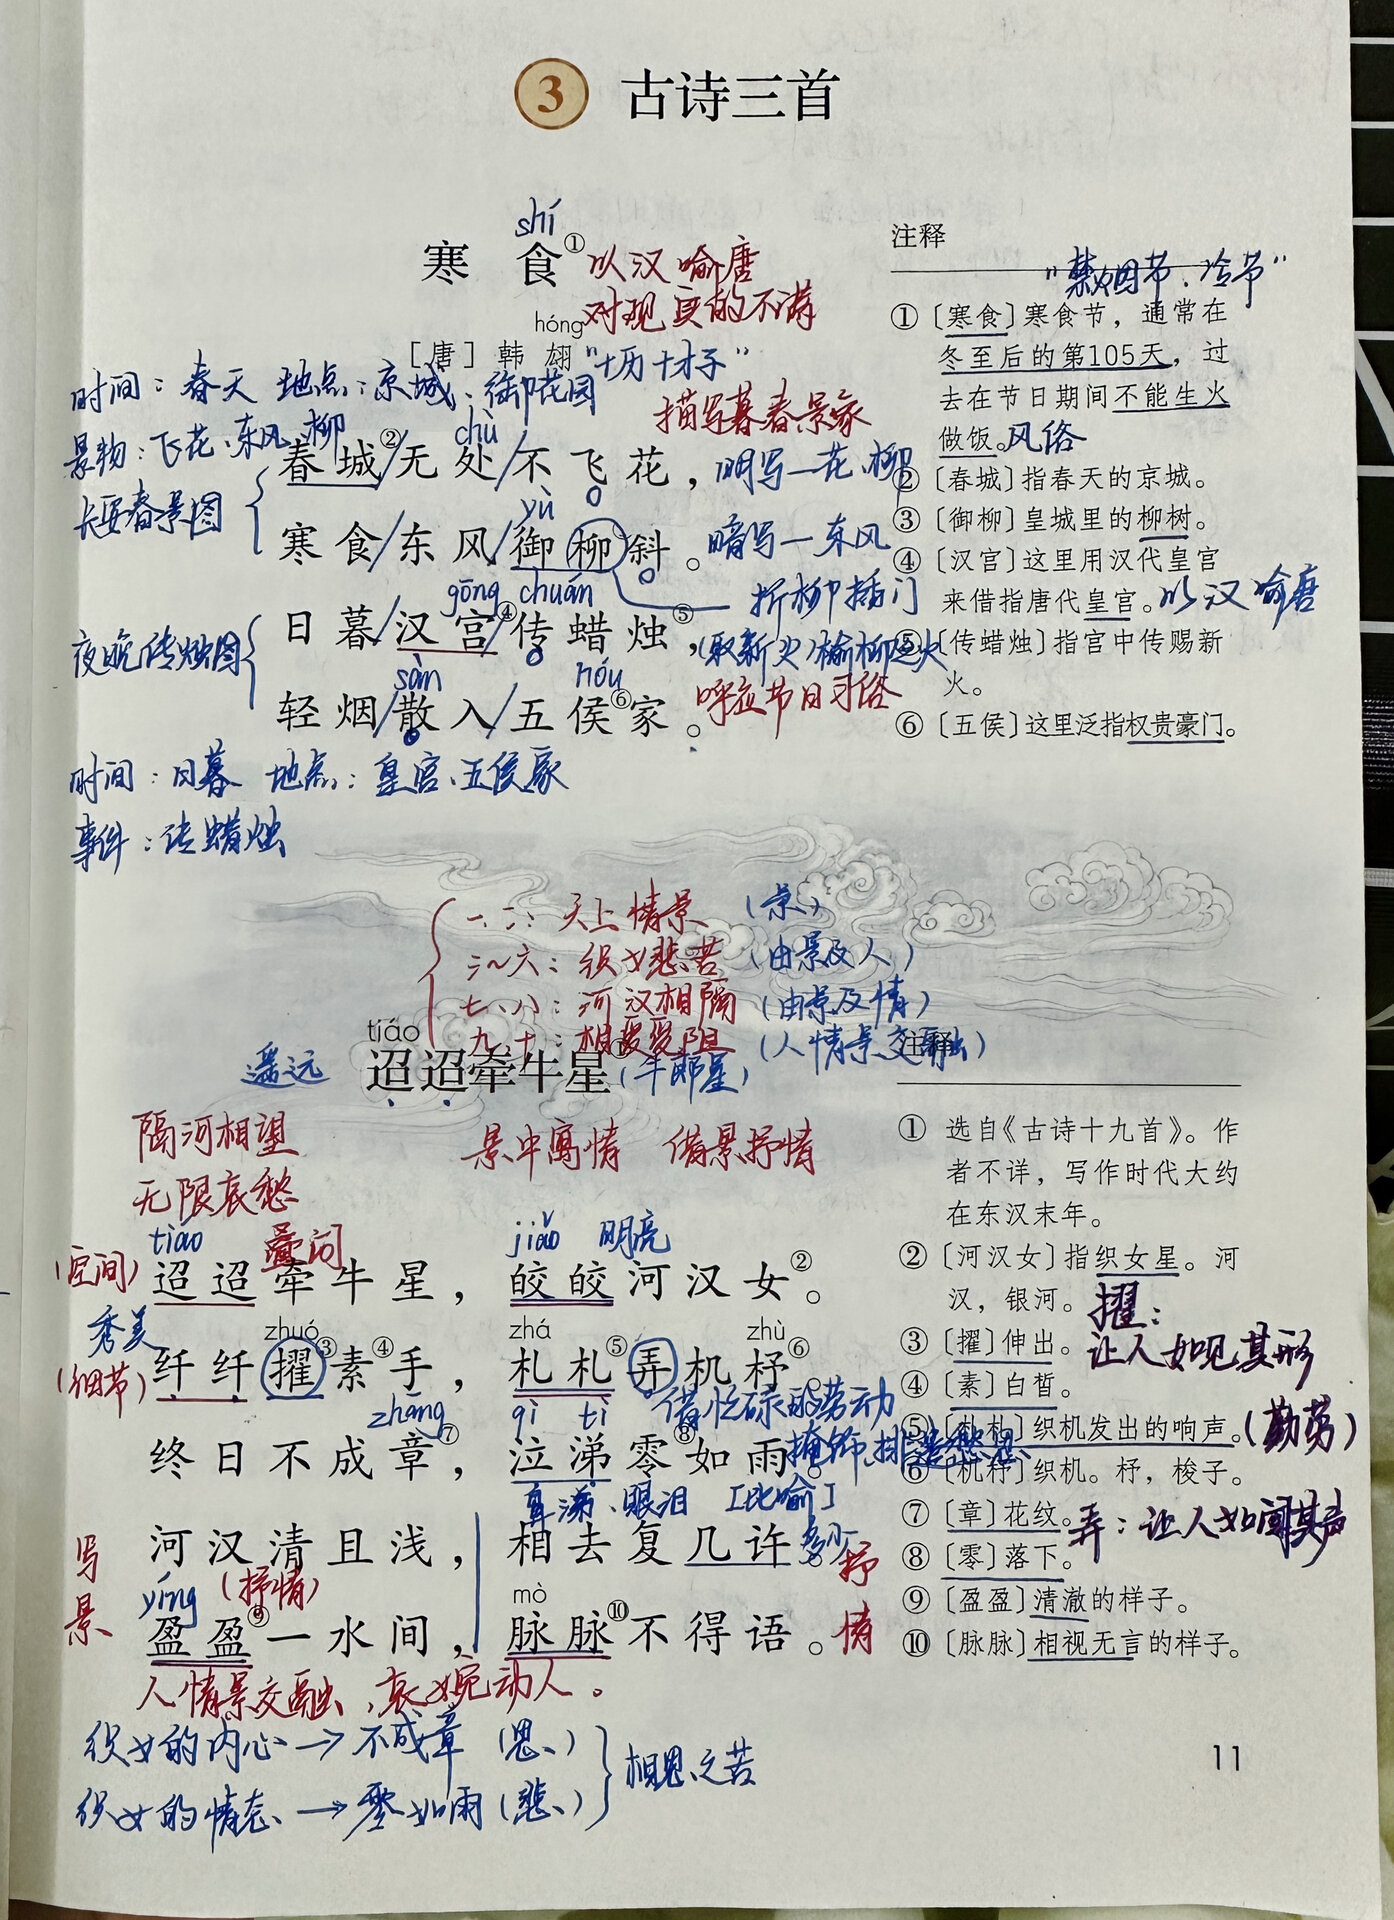 3 古诗三首
shí
寒 食①
以汉喻唐
对现实的不满
hóng
[唐] 韩 翃
"大历十才子"
时间：春天 地点：京城、御花园
景物：飞花、东风、柳
描写暮春景象
chù
春城②/无处/不飞花，
明写—花、柳
长安春景图
yù
寒食/东风/御柳③斜。
暗写—东风
折柳插门
gōng chuán
日暮/汉宫④传蜡烛⑤，
(取新火)榆柳之火
夜晚传烛图
sàn hóu
轻烟/散入/五侯⑥家。
呼应节日习俗
时间：日暮 地点：皇宫、五侯家
事件：传蜡烛
注释
"禁烟节、冷节"
①〔寒食〕寒食节，通常在
冬至后的第105天，过
去在节日期间不能生火
做饭。风俗
②〔春城〕指春天的京城。
③〔御柳〕皇城里的柳树。
④〔汉宫〕这里用汉代皇宫
来借指唐代皇宫。以汉喻唐
⑤〔传蜡烛〕指宫中传赐新
火。
⑥〔五侯〕这里泛指权贵豪门。
一、二：天上情景 (景)
三~六：织女悲苦 (由景及人)
七、八：河汉相隔 (由景及情)
九、十：相爱受阻 (人情景交融)
tiáo
遥远
迢迢牵牛星①
(牛郎星)
隔河相望
无限哀愁
景中寓情 借景抒情
tiáo 叠词 jiǎo 明亮
(空间)
迢迢牵牛星，皎皎河汉女②。
秀美
(细节)
zhuó zhá zhù
纤纤擢③素④手，札札⑤弄机杼⑥。
借忙碌的劳动
掩饰、排遣愁思
zhāng qì tì
终日不成章⑦，泣涕零⑧如雨。
鼻涕、眼泪 [比喻]
写景
河汉清且浅，相去复几许。
多少
抒情
yíng (抒情) mò
盈盈⑨一水间，脉脉⑩不得语。
人情景交融，哀婉动人。
织女的内心→不成章 (思)
织女的情态→零如雨 (悲)
相思之苦
注释
① 选自《古诗十九首》。作
者不详，写作时代大约
在东汉末年。
②〔河汉女〕指织女星。河
汉，银河。
擢：
让人如见其形
③〔擢〕伸出。
④〔素〕白皙。
⑤〔札札〕织机发出的响声。(勤劳)
⑥〔机杼〕织机。杼，梭子。
⑦〔章〕花纹。
弄：让人如闻其声
⑧〔零〕落下。
⑨〔盈盈〕清澈的样子。
⑩〔脉脉〕相视无言的样子。
11